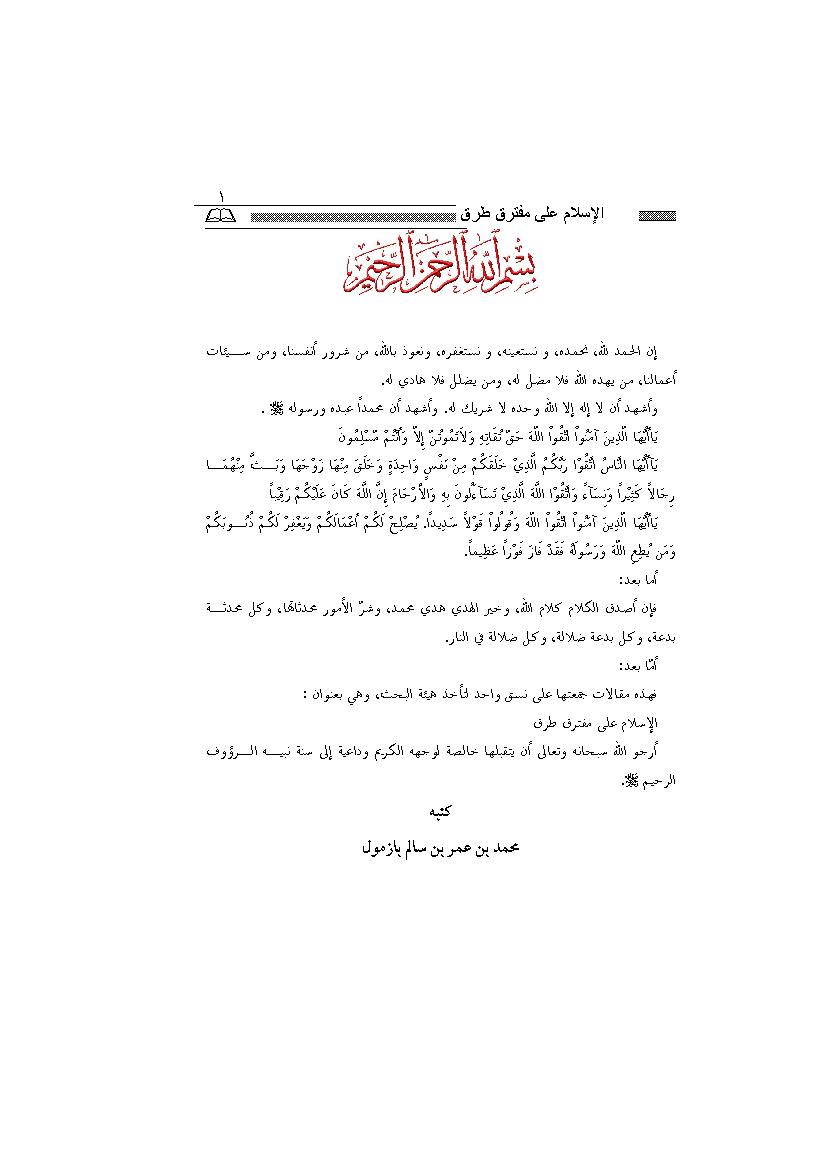 ١
الإسلام على مفترق طرق
بسم الله الرحمن الرحيم
إن الحمد لله، نحمده، و نستعينه، و نستغفره، ونعوذ بالله، من شرور أنفسنا، ومن سـيئات
أعمالنا، من يهده الله فلا مضل له، ومن يضلل فلا هادي له.
وأشهد أن لا إله إلا الله وحده لا شريك له. وأشهد أن محمداً عبده ورسوله ﷺ .
يَاأَيُّهَا الَّذِينَ آمَنُواْ اتَّقُواْ اللَّهَ حَقَّ تُقَاتِهِ وَلاَتَمُوتُنَّ إِلاَّ وَأَنْتُمْ مُّسْلِمُونَ
يَاأَيُّهَا النَّاسُ اتَّقُوْا رَبَّكُمُ الَّذِيْ خَلَقَكُمْ مِنْ نَفْسٍ وَاحِدَةٍ وَخَلَقَ مِنْهَا زَوْجَهَا وَبَـثَّ مِنْهُمَـا
رِجَالاً كَثِيْراً وَنِسَآءً وَاتَّقُوْا اللَّهَ الَّذِيْ تَسَآءَلُونَ بِهِ وَالأَرْحَامَ إِنَّ اللَّهَ كَانَ عَلَيْكُمْ رَقِيْباً
يَاأَيُّهَا الَّذِينَ آمَنُواْ اتَّقُواْ اللَّهَ وَقُولُواْ قَوْلاً سَدِيداً. يُصْلِحْ لَكُمْ أَعْمَالَكُمْ وَيَغْفِرْ لَكُمْ ذُنُـوبَكُمْ
وَمَن يُطِعِ اللَّهَ وَرَسُولَهُ فَقَدْ فَازَ فَوْزاً عَظِيماً.
أما بعد:
فإن أصدق الكلام كلام الله، وخير الهدي هدي محمد، وشرّ الأمور محدثاتها، وكل محدثـة
بدعة، وكل بدعة ضلالة، وكل ضلالة في النار.
أمّا بعد:
فهذه مقالات جمعتها على نسق واحد لتأخذ هيئة البحث، وهي بعنوان :
الإسلام على مفترق طرق
أرجو الله سبحانه وتعالى أن يتقبلها خالصة لوجهه الكريم وداعية إلى سنة نبيـه الـرؤوف
الرحيم ﷺ.
كتبه
محمد بن عمر بن سالم بازمول